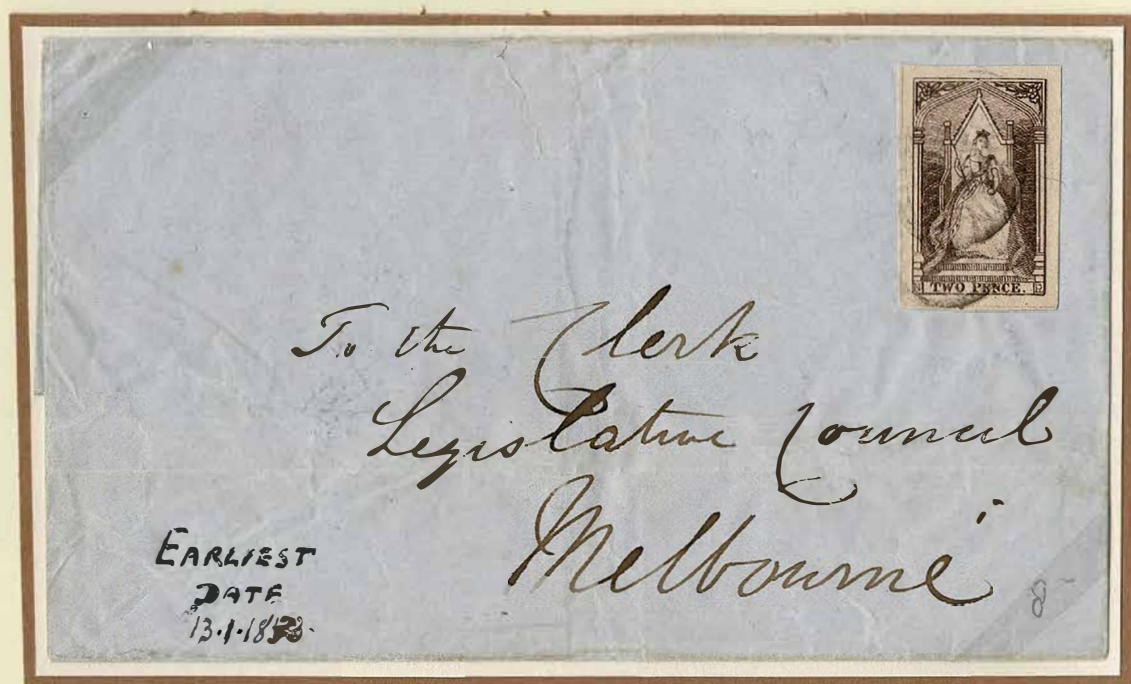 TWO PENCE.
To the Clerk
Legislative Council
Melbourne
EARLIEST
DATE
8